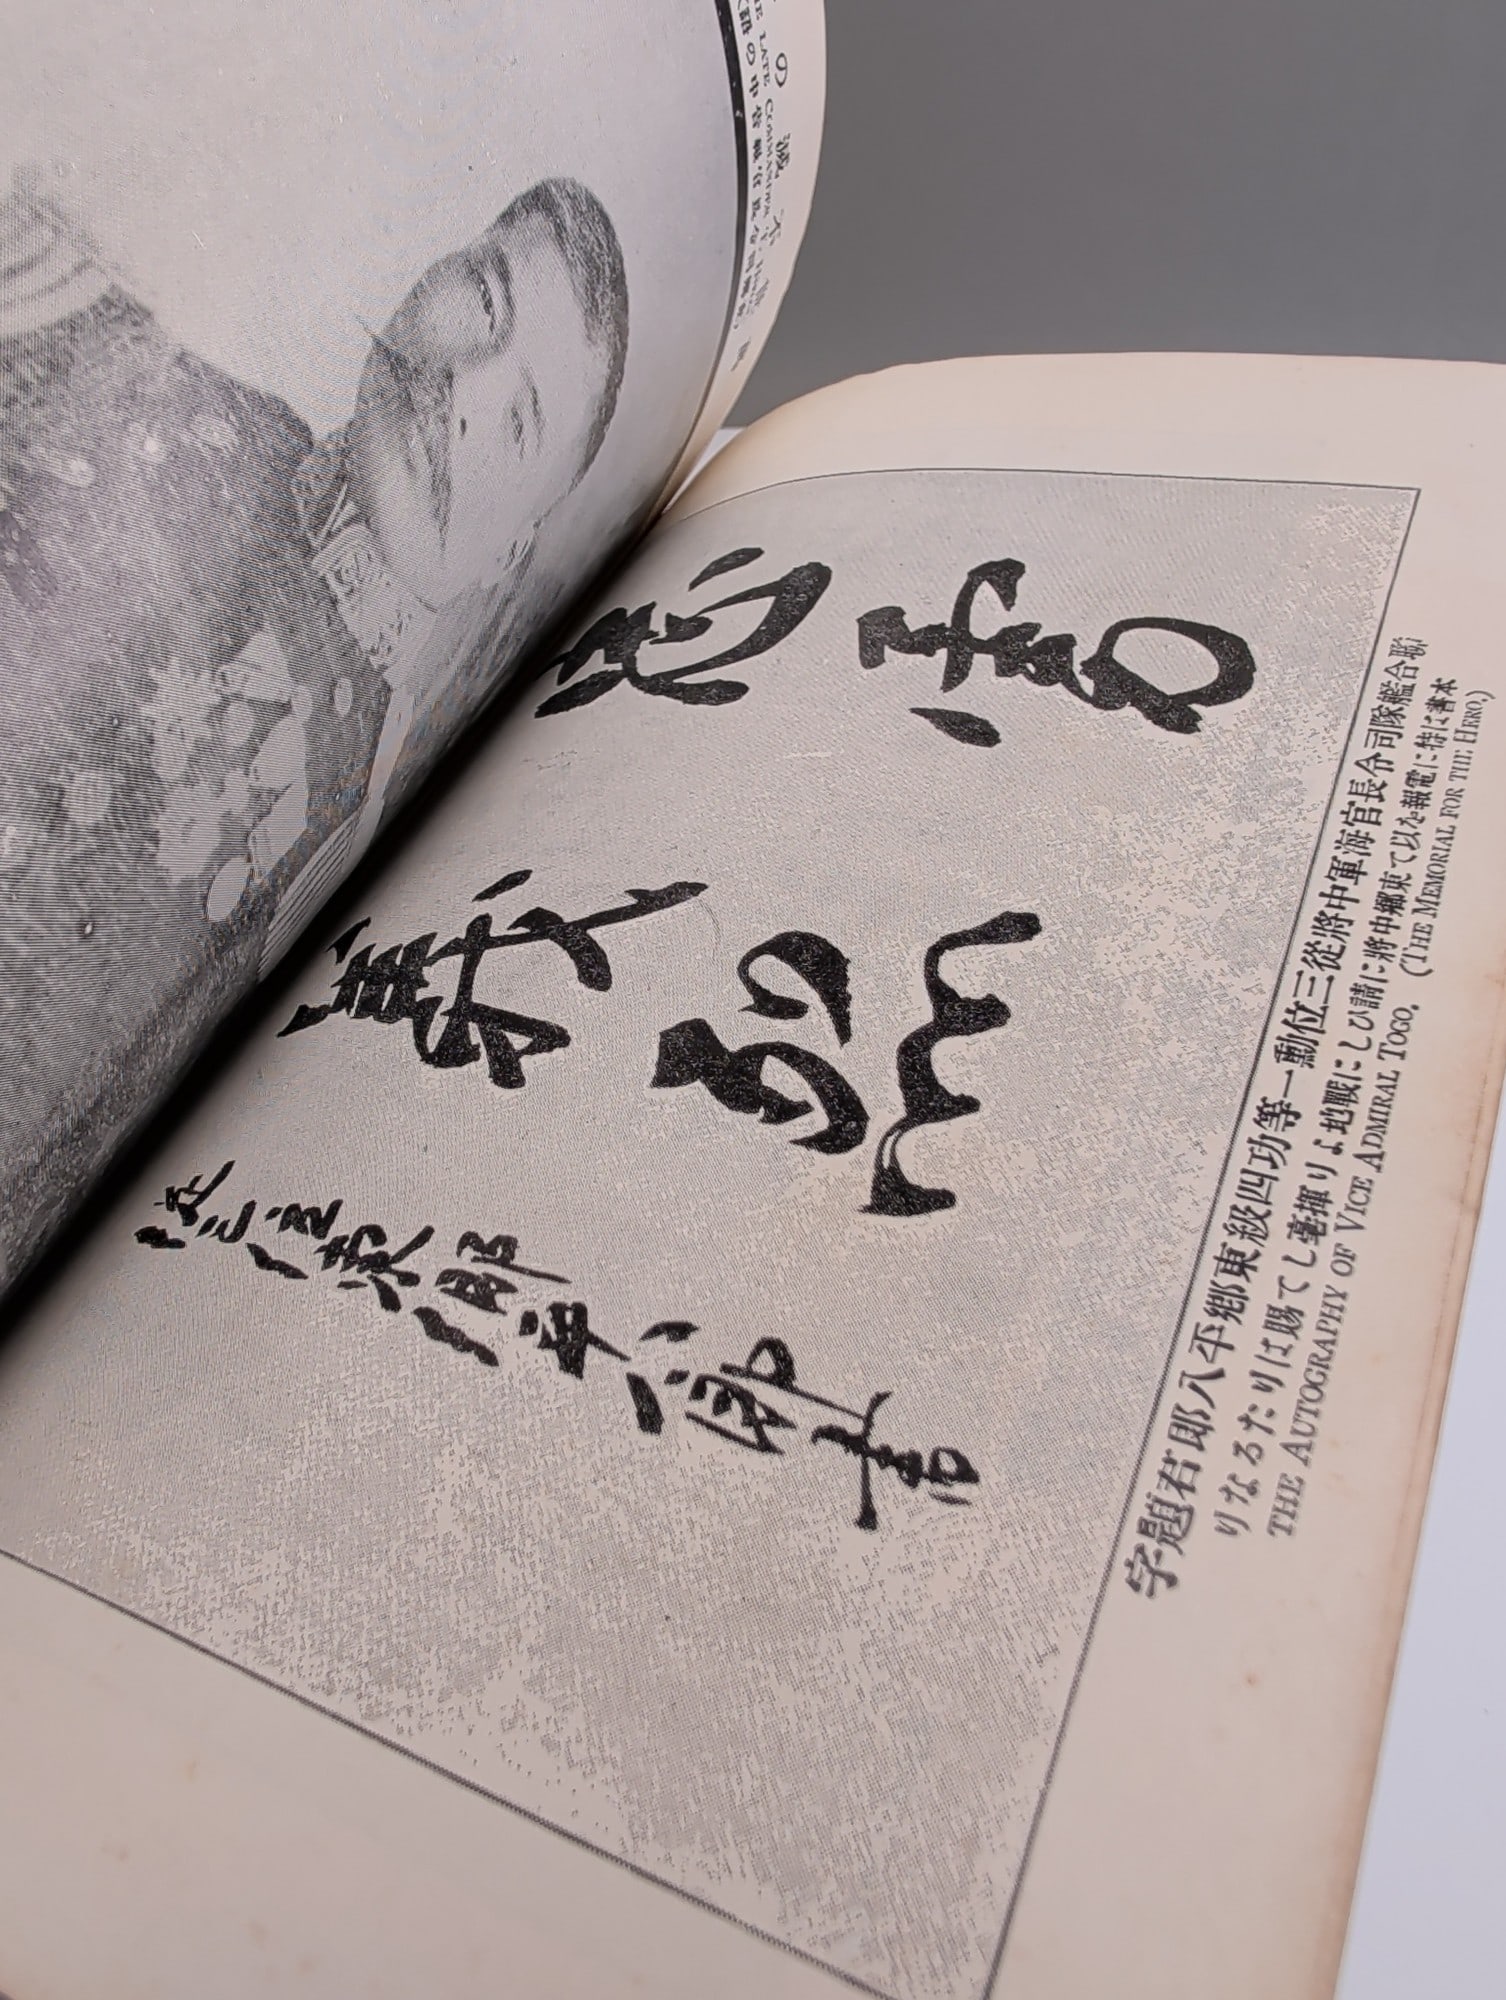 忠勇
義烈
從三位東郷平八郎書
聯合艦隊司令長官海軍中將從三位勳一等功四級東鄕平八郎君題字
本書は特に電報を以て東鄕中將に請ひしに戰地より揮毫して賜はりたるなり
THE AUTOGRAPHY OF VICE ADMIRAL TOGO. (THE MEMORIAL FOR THE HERO.)
LATE COMMANDER T.